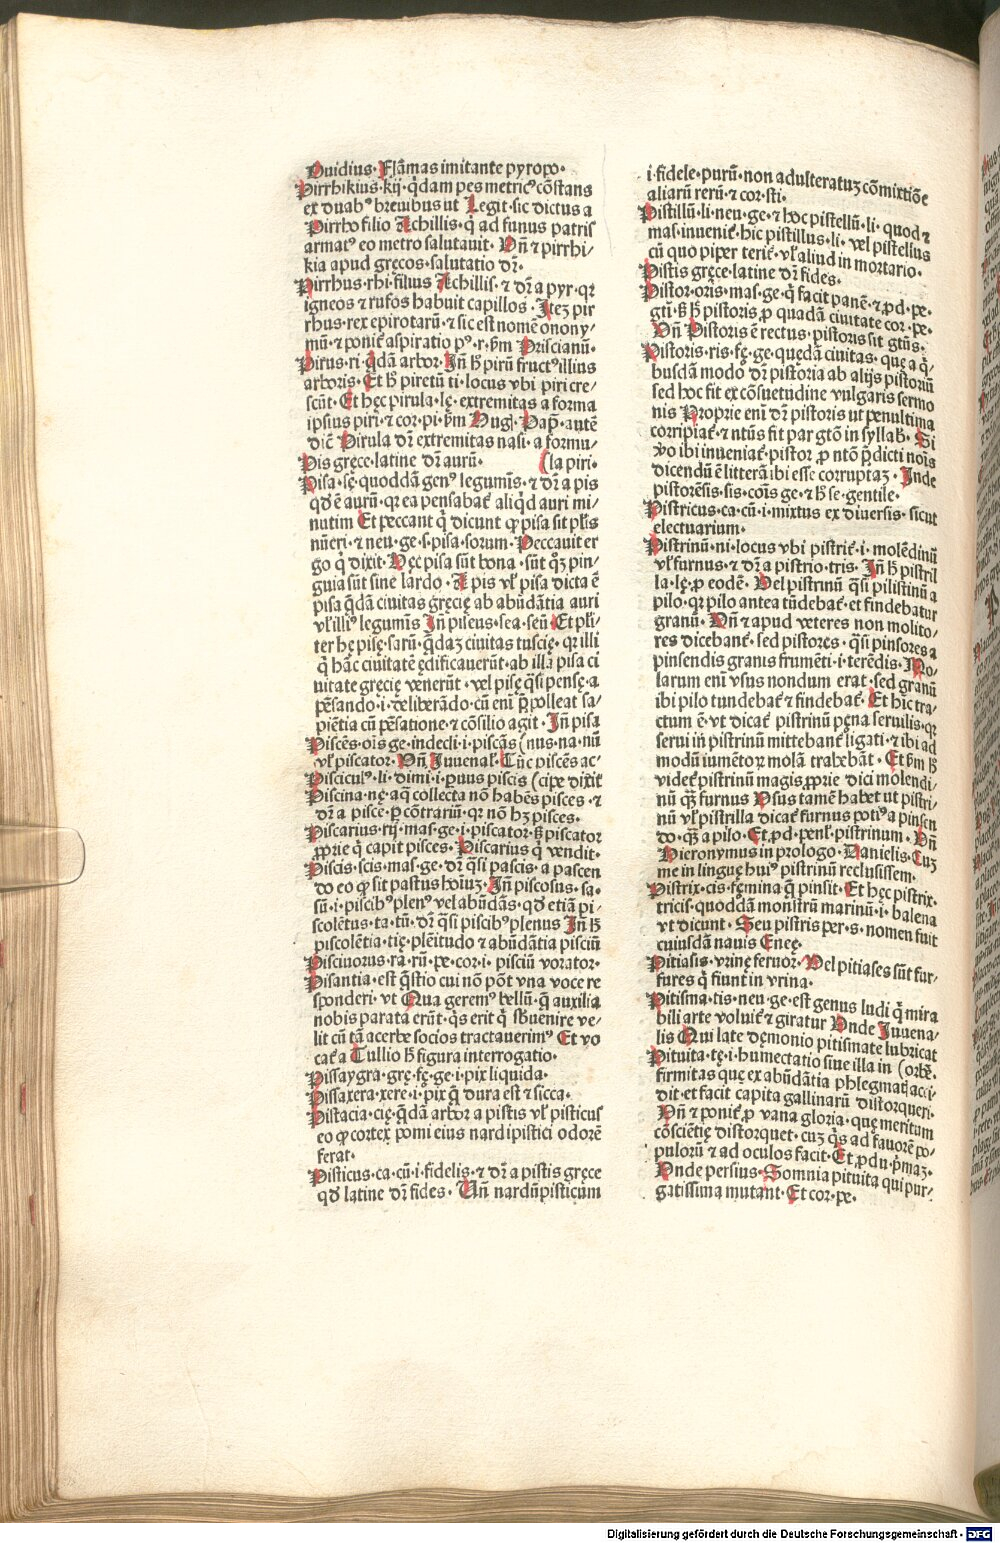 Ouidius· Flāmas imitante pyropo·
Pirrhikius·kij·q̄dam pes metricꝰ cōstans
ex duabꝰ breuibus ut Legit·sic dictus a
Pirrho filio Achillis·q̄ ad funus patris
armatꝰ eo metro salutauit· Vn̄ ⁊ pirrhi/
kia apud gręcos·salutatio dr̄·
Pirrhus·rhi·filius Achillis·⁊ dr̄ a pyr·qꝛ
igneos ⁊ rufos habuit capillos· Iteꝫ pir
rhus·rex epirotarū·⁊ sic est nomē onony/
mū·⁊ ponit̄ aspiratio pꝰ·r·ẜm Priscianū·
Pirus·ri·q̄dā arbor·In̄ h̄ pirū fructꝰ illius
arboris· Et h̄ piretū ti·locus vbi piri cre/
scūt· Et hęc pirula·lę·extremitas a forma
ipsius piri·⁊ cor·pi·ẜm Hug̣· Pap̄·autē
dic̄t Pirula dr̄ extremitas nasi·a formu/
Pis gręce·latine dr̄ aurū· (la piri·
Pisa·sę·quoddā genꝰ legumīs·⁊ dr̄ a pis
qd̄ ē aurū·qꝛ ea pensabat̄ aliq̄d auri mi/
nutim Et peccant q̄ dicunt ꝙ pisa sit pl̄is
nūeri·⁊ neu·ge·s·pisa·sorum· Peccauit er
go q̄ dixit· Nec pisa sūt bona·sūt qͦꝫ pin/
guia sūt sine lardo· A pis vl̄ pisa dicta ē
pisa q̄dā ciuitas gręcię ab abūdātia auri
vl̄ illiꝰ legumīs In̄ piseus·sea·seū· Et pl̄i/
ter hę pisę·sarū·q̄daꝫ ciuitas tuscię·qꝛ illi
q̄ hāc ciuitatē ędificauerūt·ab illa pisa ci
uitate gręcię venerūt·vel pisę q̄si pensę·a
pēsando·i·deliberādo·cū eni p̄polleat sa/
piētia cū pēsatione·⁊ cōsilio agit· In̄ pisa
Piscēs·oīs ge·indecli·i·piscās (nus·na·nū
vl̄ piscator· Vn̄ Iuuenal· Tūc piscēs ac/
Pisciculꝰ·li·dimi·i·ꝑuus piscis (cipe dixit
Piscina·nę·aq̄ collecta nō habēs pisces·⁊
dr̄ a pisce·ꝑ cōtrariū·qꝛ nō hꝫ pisces·
Piscarius·rij·mas·ge·i·piscator·ẜ piscator
ꝓprie q̄ capit pisces· Piscarius q̄ vendit·
Piscis·scis·mas·ge·dr̄ q̄si pascis·a pascen
do eo ꝙ sit pastus hoīuꝫ· In̄ piscosus·sa·
sū·i·piscibꝰ plenꝰ vel abūdās·qd̄ etiā pi/
scolētus·ta·tū·dr̄ q̄si piscibꝰ plenus In̄ h̄
piscolētia·tię·plēitudo ⁊ abūdātia pisciū
Pisciuorus·ra·rū·pe·cor·i·pisciū vorator·
Pisantia·est q̄stio cui nō pōt vna voce re
sponderi·vt Qua geremꝰ bellū·q̄ auxilia
nobis parata erūt·q̄s erit q̄ sb̄uenire ve/
lit cū tā acerbe socios tractauerimꝰ Et vo
cat̄ a Tullio h̄ figura interrogatio·
Pissaygra·grę·fę·ge·i·pix liquida·
Pissaxera·xere·i·pix q̄ dura est ⁊ sicca·
Pistacia·cię·q̄dā arbor a pistis vl̄ pisticus
eo ꝙ cortex pomi eius nardi pistici odorē
ferat·
Pisticus·ca·cū·i·fidelis·⁊ dr̄ a pistis gręce
qd̄ latine dr̄ fides· Vn̄ nardū pisticum
i·fidele·purū·non adulteratuꝫ cōmixtiōe
aliarū rerū·⁊ cor·sti·
Pistillū·li·neu·ge·⁊ hoc pistellū·li·quod ⁊
mas·inuenit̄·hic pistillus·li·vel pistellus
cū quo piper terit̄·vl̄ aliud in mortario·
Pistis gręce·latine dr̄ fides·
Pistor·oris·mas·ge·q̄ facit panē·⁊ ꝓd·pe·
gti·ẜ h̄ pistoris ꝓ quadā ciuitate cor·pe·
Vn̄ Pistoris ē rectus·pistoris sit gtūs·
Pistoris·ris·fę·ge·quędā ciuitas·quę a q̄/
busdā modo dr̄ pistoria ab alijs pistoriū
sed hoc fit ex cōsuetudine vulgaris sermo
nis Proprie eni dr̄ pistoris ut penultima
corripiat̄·⁊ ntūs fit par gtō in syllab̄· Si
v̄o ibi inueniat̄·pistor ꝓ ntō p̄dicti noīs
dicendū ē litterā ibi esse corruptaꝫ· Inde
pistorēsis·sis·cōis ge·⁊ h̄ se·gentile·
Pistricus·ca·cū·i·mixtus ex diuersis·sicut
electuarium·
Pistrinū·ni·locus vbi pistrit̄·i·molēdinū
vl̄ furnus·⁊ dr̄ a pistrio·tris· In̄ h̄ pistril
la·lę·ꝓ eodē· Vel pistrinū q̄si pilistinū a
pilo·qꝛ pilo antea tūdebat̄·et findebatur
granū· Vn̄ ⁊ apud veteres non molito/
res dicebant̄·sed pistores·q̄si pinsores a
pinsendis granis frumēti·i·terēdis· Mo/
larum eni vsus nondum erat·sed granū
ibi pilo tundebat̄ ⁊ findebat̄· Et hīc tra/
ctum ē·vt dicat̄ pistrinū pęna seruilis·qꝛ
serui in pistrinū mittebant̄ ligati·⁊ ibi ad
modū iumētoꝝ molā trahebāt· Et ẜm h̄
videt̄ pistrinū magis ꝓprie dici molendi/
nū qͣꝫ furnus Vsus tamē habet ut pistri/
nū vl̄ pistrilla dicat̄ furnus potiꝰ a pinsen
do·qͣꝫ a pilo· Et ꝓd·penl̄·pistrinum· Vn̄
Hieronymus in prologo· Danielis· Cuꝫ
me in linguę huiꝰ pistrinū reclusissem·
Pistrix·cis·fęmina q̄ pinsit· Et hęc pistrix·
tricis·quoddā monstrū marinū·i·balena
vt dicunt· Seu pistris per·s·nomen fuit
cuiusdā nauis Eneę·
Pitiasis·vrinę feruor· Vel pitiases sūt fur/
fures q̄ fiunt in vrina·
Pitisma·tis·neu·ge·est genus ludi q̄ mira
bili arte voluit̄ ⁊ giratur Vnde Iuuena/
lis Qui late dęmonio pitismate lubricat
Pituita·tę·i·humectatio siue illa in (orbē·
firmitas quę ex abūdātia phlegmatꝭ acci/
dit·et facit capita gallinarū distorqueri·
Vn̄ ⁊ ponit̄ ꝓ vana gloria·quę meritum
cōscientię distorquet·cuꝫ q̄s ad fauorē po/
pulorū ⁊ ad oculos facit· Et ꝓdu·p̄maꝫ·
Vnde persius· Somnia pituita qui pur/
gatissima mutant· Et cor·pe·
Digitalisierung gefördert durch die Deutsche Forschungsgemeinschaft - DFG